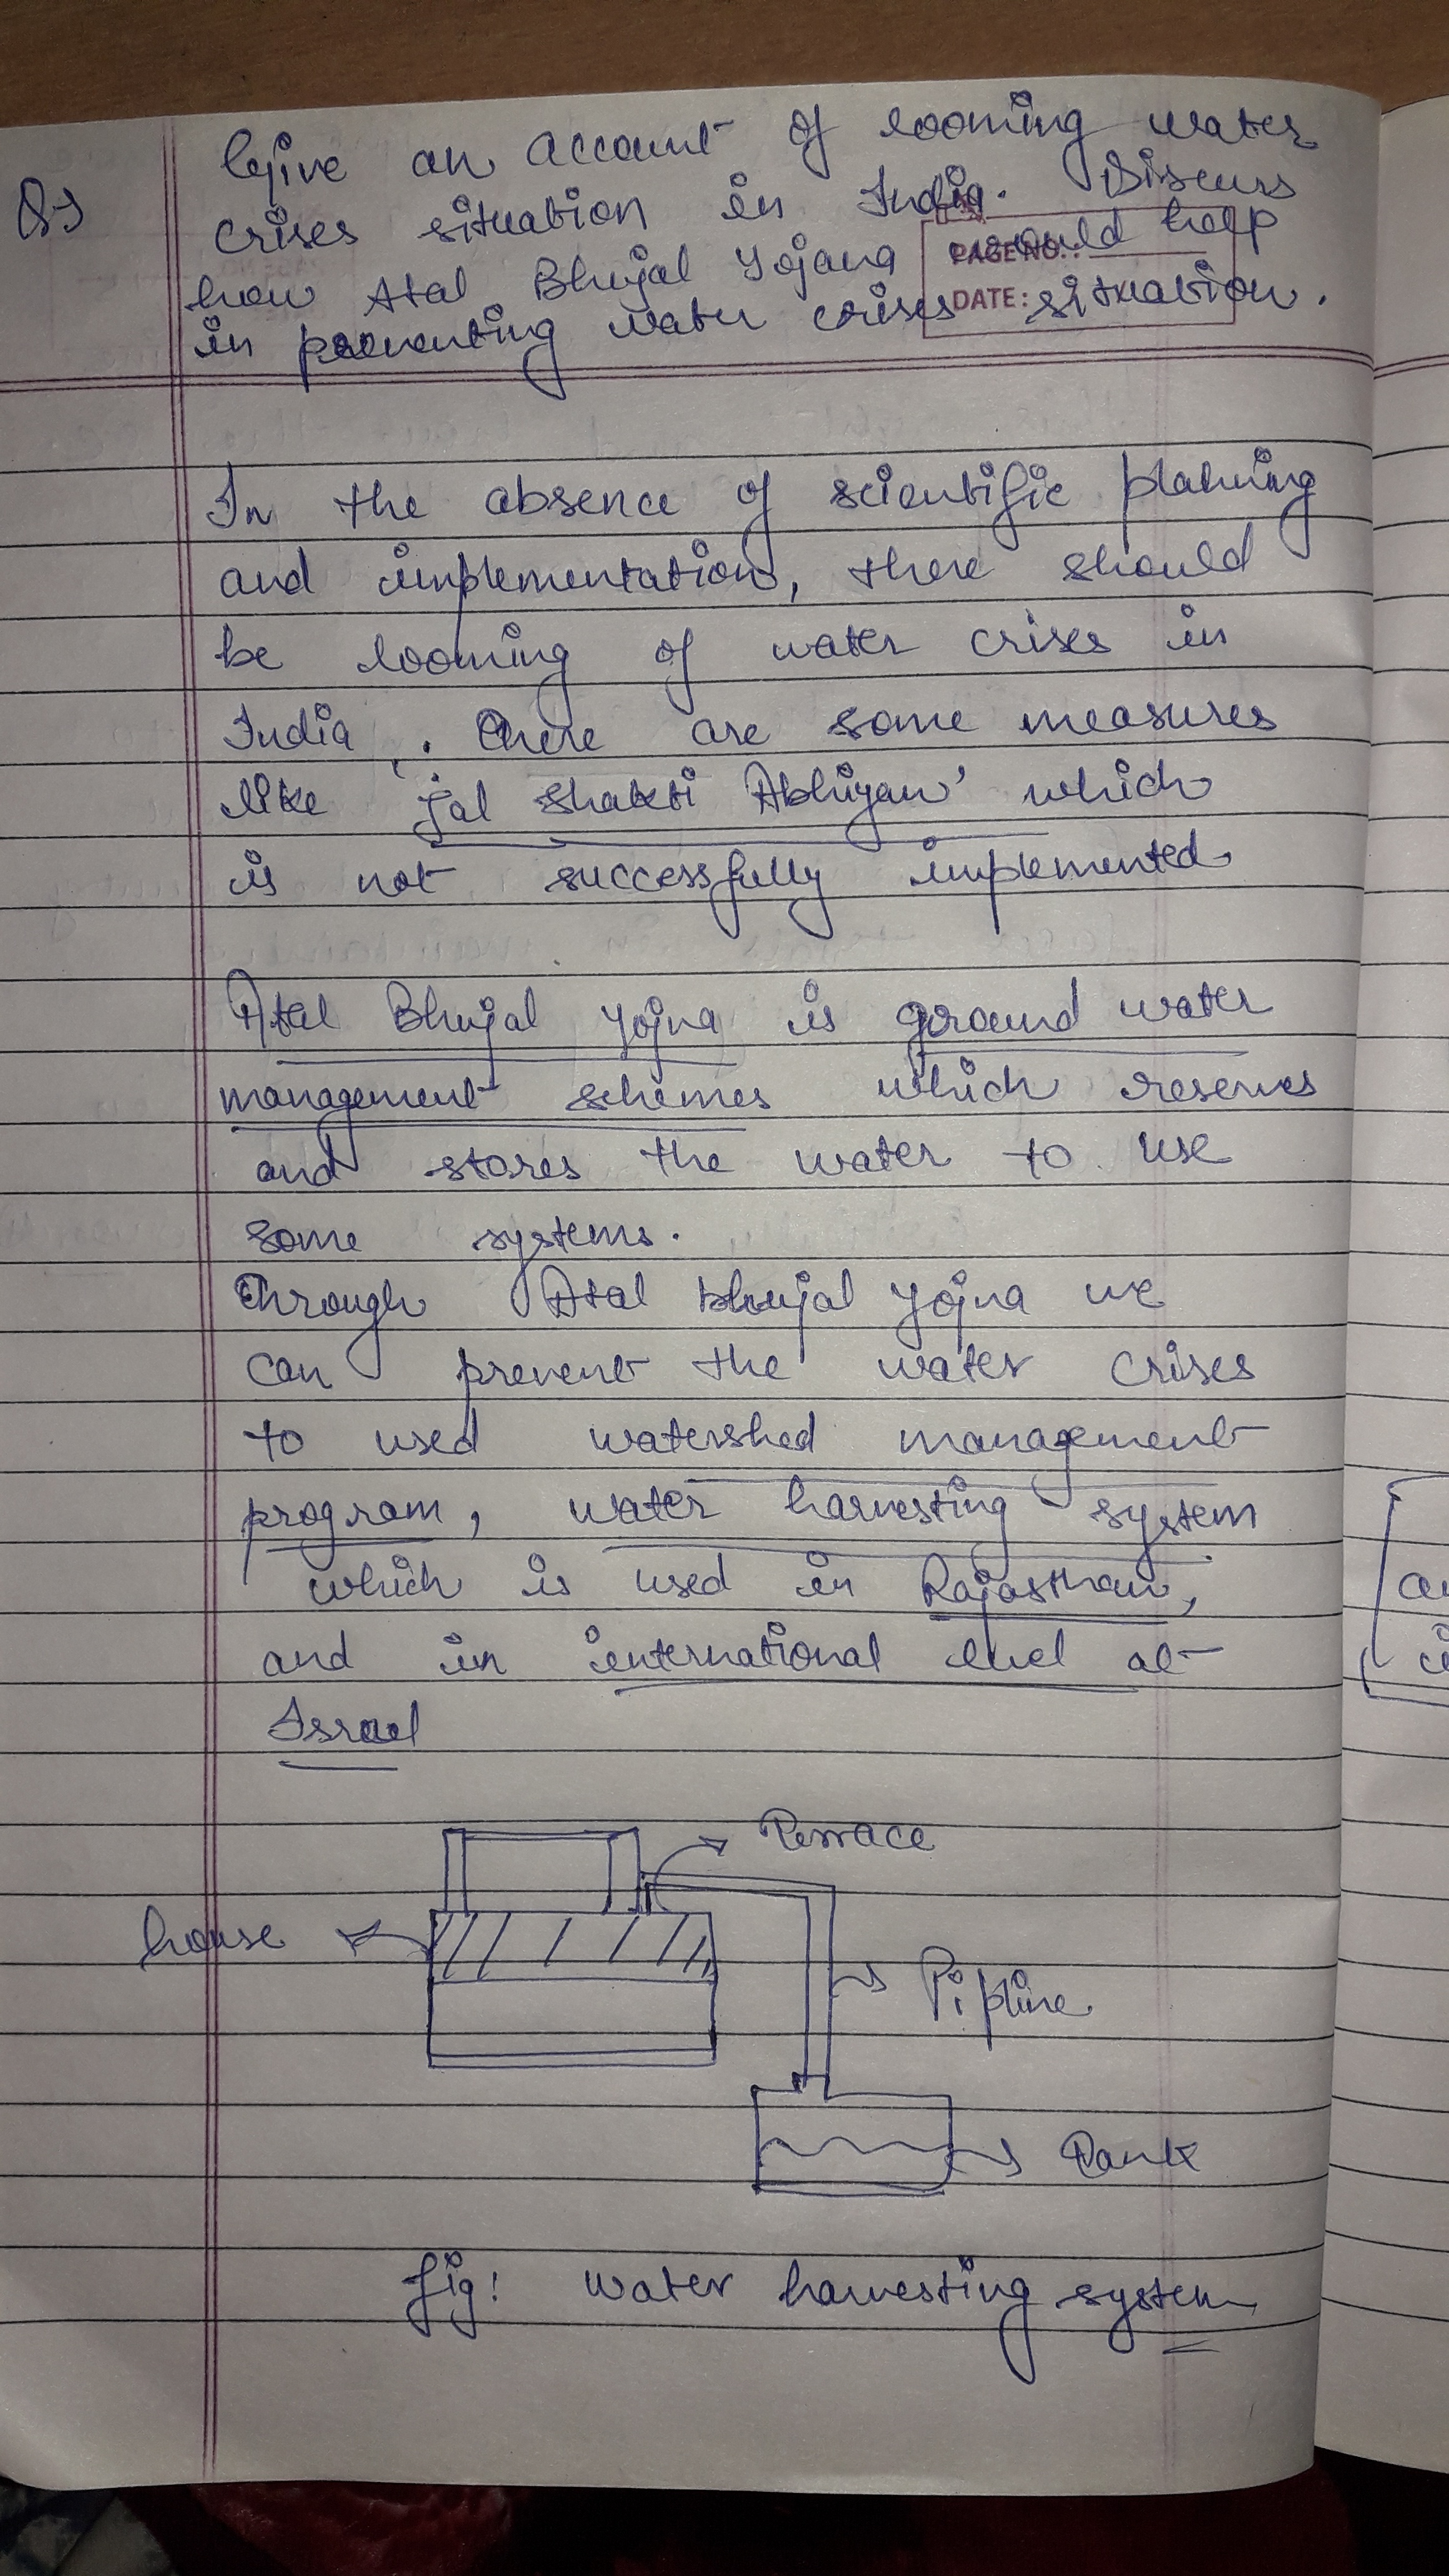 Q-3
Give an account of looming water
crises situation in India. Discuss
how Atal Bhujal Yojana would help
in preventing water crises situation.
PAGE NO.:
DATE:
In the absence of scientific planning
and implementation, there should
be looming of water crises in
India. There are some measures
like 'Jal Shakti Abhiyan' which
is not successfully implemented
Atal Bhujal Yojna is ground water
management schemes which reserves
and stores the water to use
some systems.
Through Atal bhujal Yojna we
can prevent the water crises
to used watershed management
program, water harvesting system
which is used in Rajasthan,
and in international level at
Israel
Terrace
house
Pipline
Tank
fig: water harvesting system